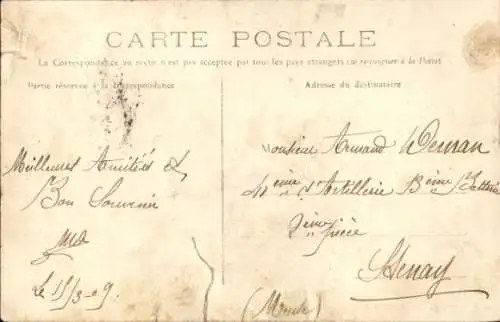 CARTE POSTALE
La Correspondance au recto n'est pas acceptée par tous les pays étrangers (se renseigner à la Poste)
Partie réservée à la correspondance
Adresse du destinataire
Meilleures Amitiés &
Bon Souvenir
Le 15/3-09.
Monsieur Armand
40ème d'Artillerie 3ème Batterie
2ème pièce
Stenay
(Meuse)